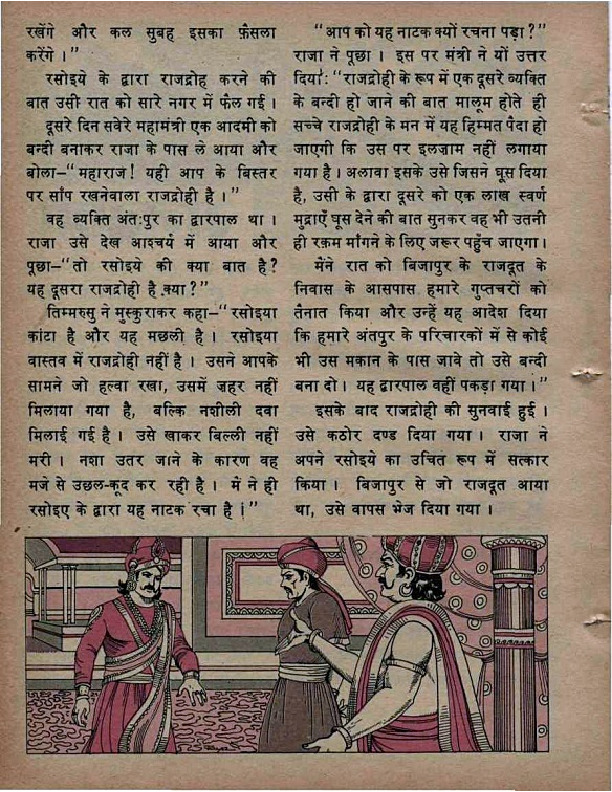 रखेंगे और कल सुबह इसका फ़ैसला
करेंगे ।"
रसोइये के द्वारा राजद्रोह करने की
बात उसी रात को सारे नगर में फैल गई ।
दूसरे दिन सवेरे महामंत्री एक आदमी को
बन्दी बनाकर राजा के पास ले आया और
बोला–"महाराज! यही आप के बिस्तर
पर साँप रखनेवाला राजद्रोही है ।"
वह व्यक्ति अंतःपुर का द्वारपाल था ।
राजा उसे देख आश्चर्य में आया और
पूछा–"तो रसोइये की क्या बात है?
यह दूसरा राजद्रोही है क्या?"
तिम्मरुसु ने मुस्कुराकर कहा–"रसोइया
कांटा है और यह मछली है । रसोइया
बास्तव में राजद्रोही नहीं है । उसने आपके
सामने जो हल्वा रखा, उसमें ज़हर नहीं
मिलाया गया है, बल्कि नशीली दवा
मिलाई गई है । उसे खाकर बिल्ली नहीं
मरी । नशा उतर जाने के कारण वह
मजे से उछल-कूद कर रही है । में ने ही
रसोइए के द्वारा यह नाटक रचा है ।"
"आप को यह नाटक क्यों रचना पड़ा?"
राजा ने पूछा । इस पर मंत्री ने यों उत्तर
दिया: "राजद्रोही के रूप में एक दूसरे व्यक्ति
के बन्दी हो जाने की बात मालूम होते ही
सच्चे राजद्रोही के मन में यह हिम्मत पैदा हो
जाएगी कि उस पर इलज़ाम नहीं लगाया
गया है । अलावा इसके उसे जिसने घूस दिया
है, उसी के द्वारा दूसरे को एक लाख स्वर्ण
मुद्राएँ घूस देने की बात सुनकर वह भी उतनी
ही रक़म माँगने के लिए जरूर पहुँच जाएगा ।
मैंने रात को बिजापुर के राजदूत के
निवास के आसपास हमारे गुप्तचरों को
तैनात किया और उन्हें यह आदेश दिया
कि हमारे अंतपुर के परिचारकों में से कोई
भी उस मकान के पास जावे तो उसे बन्दी
बना दो । यह द्वारपाल वहीं पकड़ा गया ।"
इसके बाद राजद्रोही की सुनवाई हुई ।
उसे कठोर दण्ड दिया गया । राजा ने
अपने रसोइये का उचित रूप में सत्कार
किया । बिजापुर से जो राजदूत आया
था, उसे वापस भेज दिया गया ॥